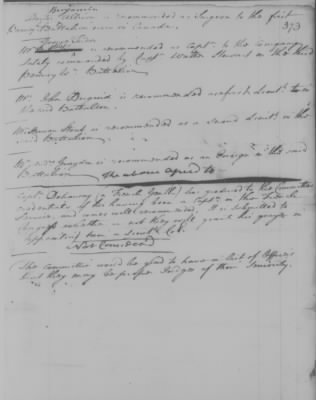 Benjamin
Allison is recommended as Surgeon to the first 373
Penny. Battalion now in Canada.
Mr. is recommended as Capt. to the Company
lately commanded by Capt. Walter Stewart in the third
Penny. Battalion
Mr. John is recommended as first Lieut. to
Battalion.
is recommended as a second Lieut. in the
said Battalion.
Mr. Graydon is recommended as an Ensign in the said
Battalion The above agreed to
Capt. (a French Gentln.) has produced to the Committee
credentials of his having been a Capt. in the French
Service, and comes well recommended. It is submitted to
Congress whether or not they will grant his prayer in
appointing him a Lieut. Col.
Not Considered
The Committee would be glad to have a list of Officers
that they may be proper Judges of their Seniority.